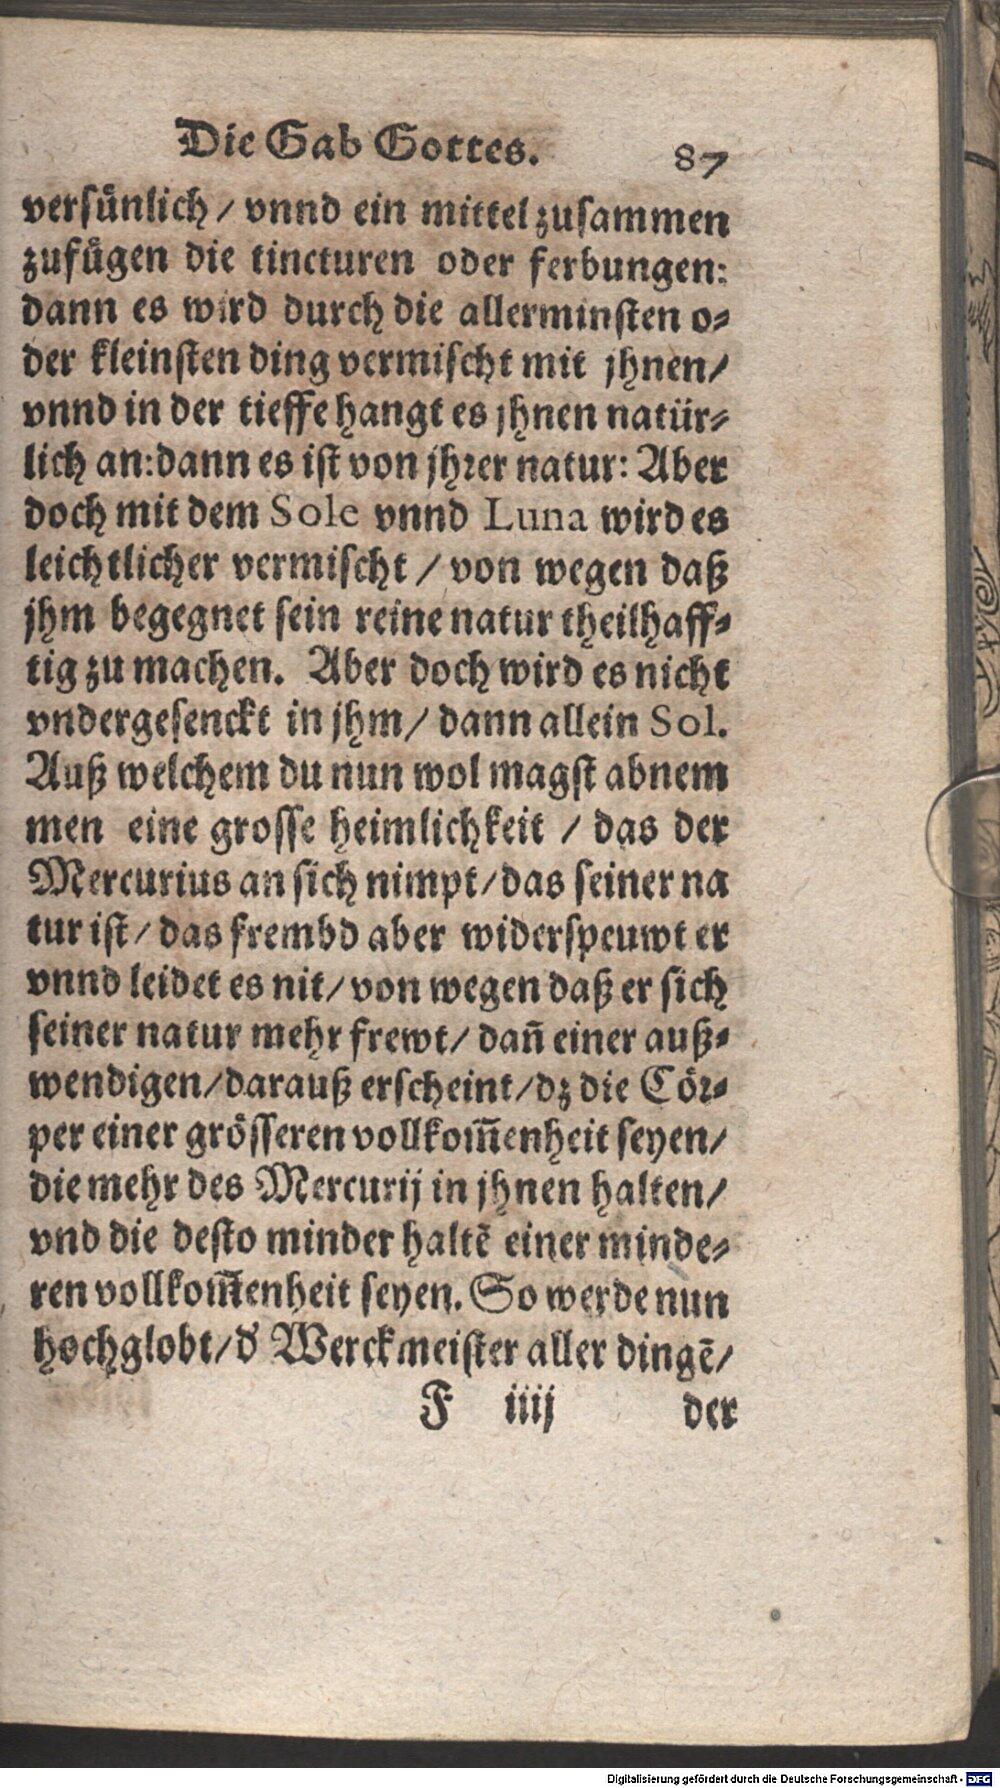 Die Gab Gottes. 87
versünlich / vnnd ein mittel zusammen
zufügen die tincturen oder ferbungen:
dann es wird durch die allerminsten o⸗
der kleinsten ding vermischt mit jhnen/
vnnd in der tieffe hangt es jhnen natür⸗
lich an: dann es ist von jhrer natur: Aber
doch mit dem Sole vnnd Luna wird es
leichtlicher vermischt / von wegen daß
jhm begegnet sein reine natur theilhaff⸗
tig zu machen. Aber doch wird es nicht
vndergesenckt in jhm / dann allein Sol.
Auß welchem du nun wol magst abnem
men eine grosse heimlichkeit / das der
Mercurius an sich nimpt / das seiner na
tur ist / das frembd aber widerspeuwt er
vnnd leidet es nit / von wegen daß er sich
seiner natur mehr frewt / dañ einer auß⸗
wendigen / darauß erscheint / dz die Cör⸗
per einer grösseren vollkom̃enheit seyen/
die mehr des Mercurij in jhnen halten/
vnd die desto minder haltẽ einer minde⸗
ren vollkom̃enheit seyen. So werde nun
hochglobt / d' Werckmeister aller dingẽ/
F iiij der
Digitalisierung gefördert durch die Deutsche Forschungsgemeinschaft - DFG